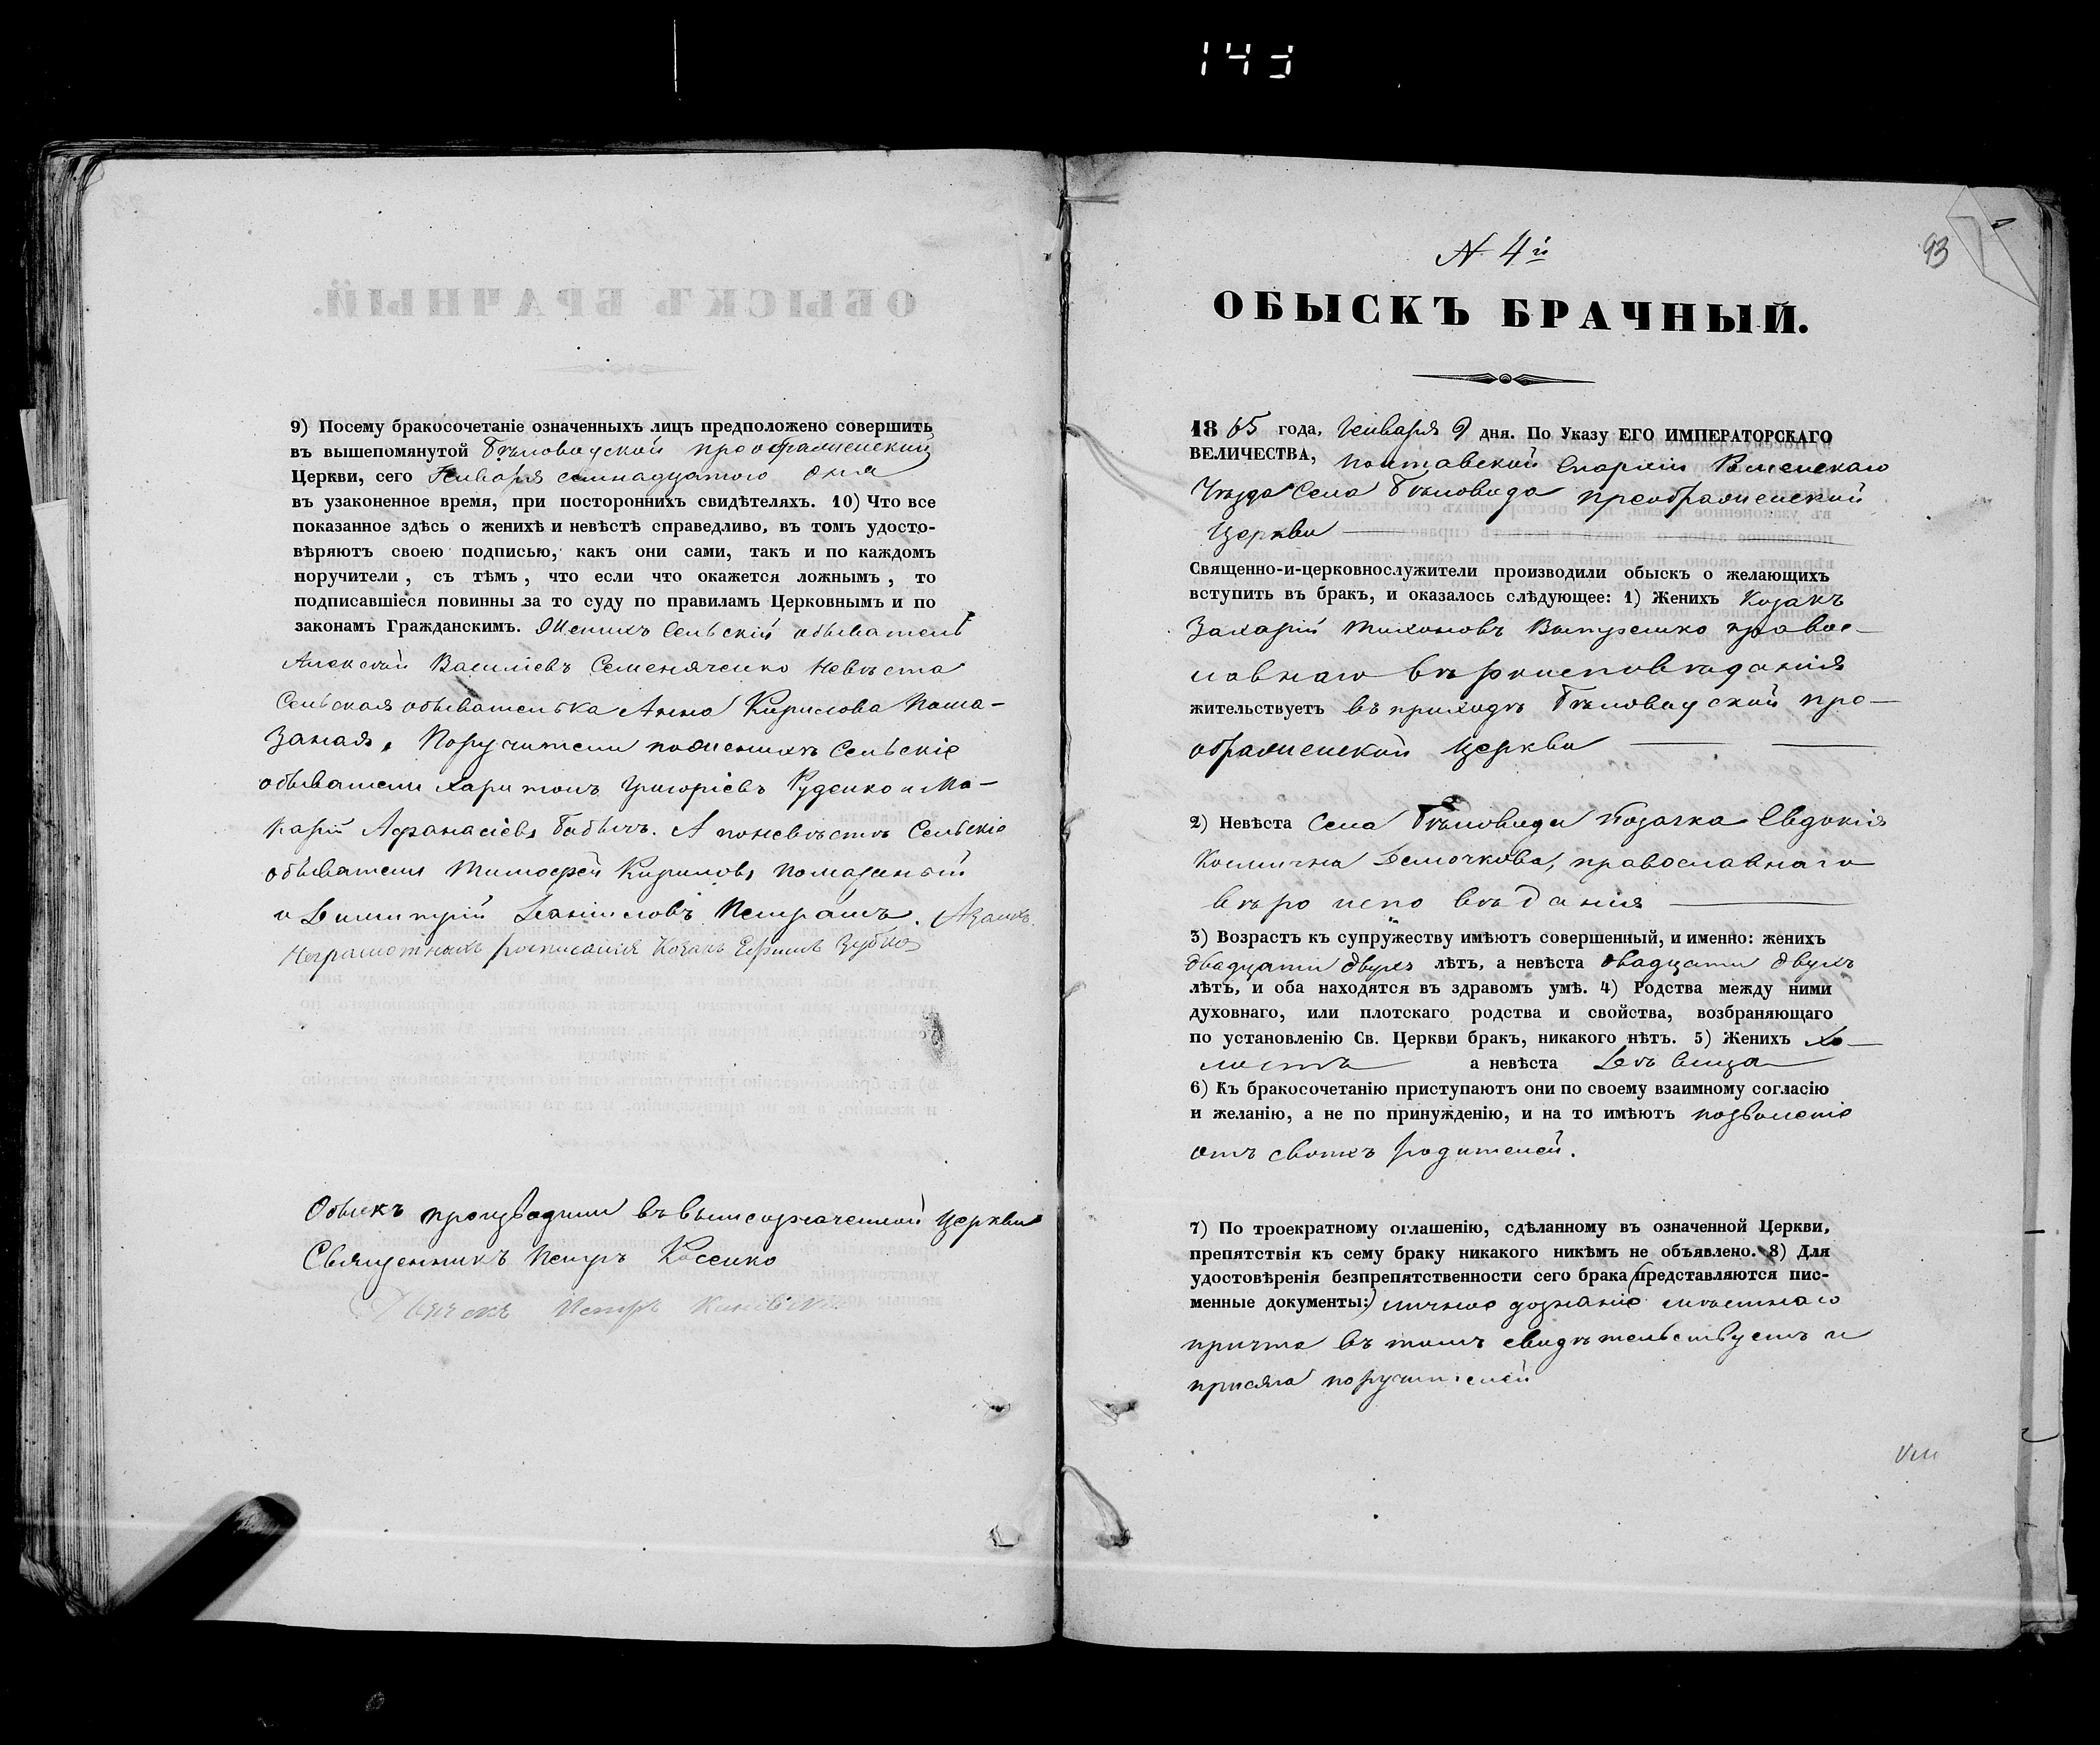 143
9) Посему бракосочетаніе означенныхъ лицъ предположено совершить
въ вышепомянутой Бѣловодской преображенской
Церкви, сего Генваря семнадцатого дня
въ узаконенное время, при постороннихъ свидѣтеляхъ. 10) Что все
показанное здѣсь о женихѣ и невѣстѣ справедливо, въ томъ удосто-
вѣряютъ своею подписью, какъ они сами, такъ и по каждомъ
поручители, съ тѣмъ, что если что окажется ложнымъ, то
подписавшіеся повинны за то суду по правиламъ Церковнымъ и по
законамъ Гражданскимъ. Женихъ Сельскій обыватель
Алексѣй Василіевъ Семеняченко Невѣста
Сельская обывателька Анна Кирилова Пома-
заная, Поручители поженихѣ Сельскіе
обыватели Харитонъ Григоріевъ Руденко и Ма-
карій Афанасіевъ Бабычъ. А поневѣстѣ Сельскіе
обыватели Тимофей Кириловъ Помазаный
и Димитрій Даніиловъ Петрашъ. Азанихъ
Неграмотныхъ росписался Козакъ Ефимъ Зубко
Обыскъ производили въ вышеозначенной Церкви
Священникъ Петръ Косенко
Петръ
N 4й
93
ОБЫСКЪ БРАЧНЫЙ.
1865 года, Генваря 9 дня. По Указу ЕГО ИМПЕРАТОРСКАГО
ВЕЛИЧЕСТВА, Полтавской Епархіи Роменскаго
Уѣзда Села Бѣловода преображенской
Церкви
Священно-и-церковнослужители производили обыскъ о желающихъ
вступить въ бракъ, и оказалось слѣдующее: 1) Женихъ Козакъ
Захарій Тихоновъ православ-
лавнаго вѣроисповѣданія
жительствуетъ въ приходѣ Бѣловодской пре-
ображенской Церкви
2) Невѣста Села Бѣловода Козачка Евдокія
Космична Демочкова, православнаго
вѣроисповѣданія
3) Возрастъ къ супружеству имѣютъ совершенный, и именно: женихъ
двадцати двухъ лѣтъ, а невѣста двадцати двухъ
лѣтъ, и оба находятся въ здравомъ умѣ. 4) Родства между ними
духовнаго, или плотскаго родства и свойства, возбраняющаго
по установленію Св. Церкви бракъ, никакого нѣтъ. 5) Женихъ хо-
лостъ а невѣста Дѣвица
6) Къ бракосочетанію приступаютъ они по своему взаимному согласію
и желанію, а не по принужденію, и на то имѣютъ позволеніе
отъ своихъ родителей.
7) По троекратному оглашенію, сдѣланному въ означенной Церкви,
препятствія къ сему браку никакого никѣмъ не объявлено. 8) Для
удостовѣренія безпрепятственности сего брака (представляются пис-
менные документы:) личное дознаніе мѣстнаго
причта въ томъ свидѣтельствуетъ и
присяга поручителей